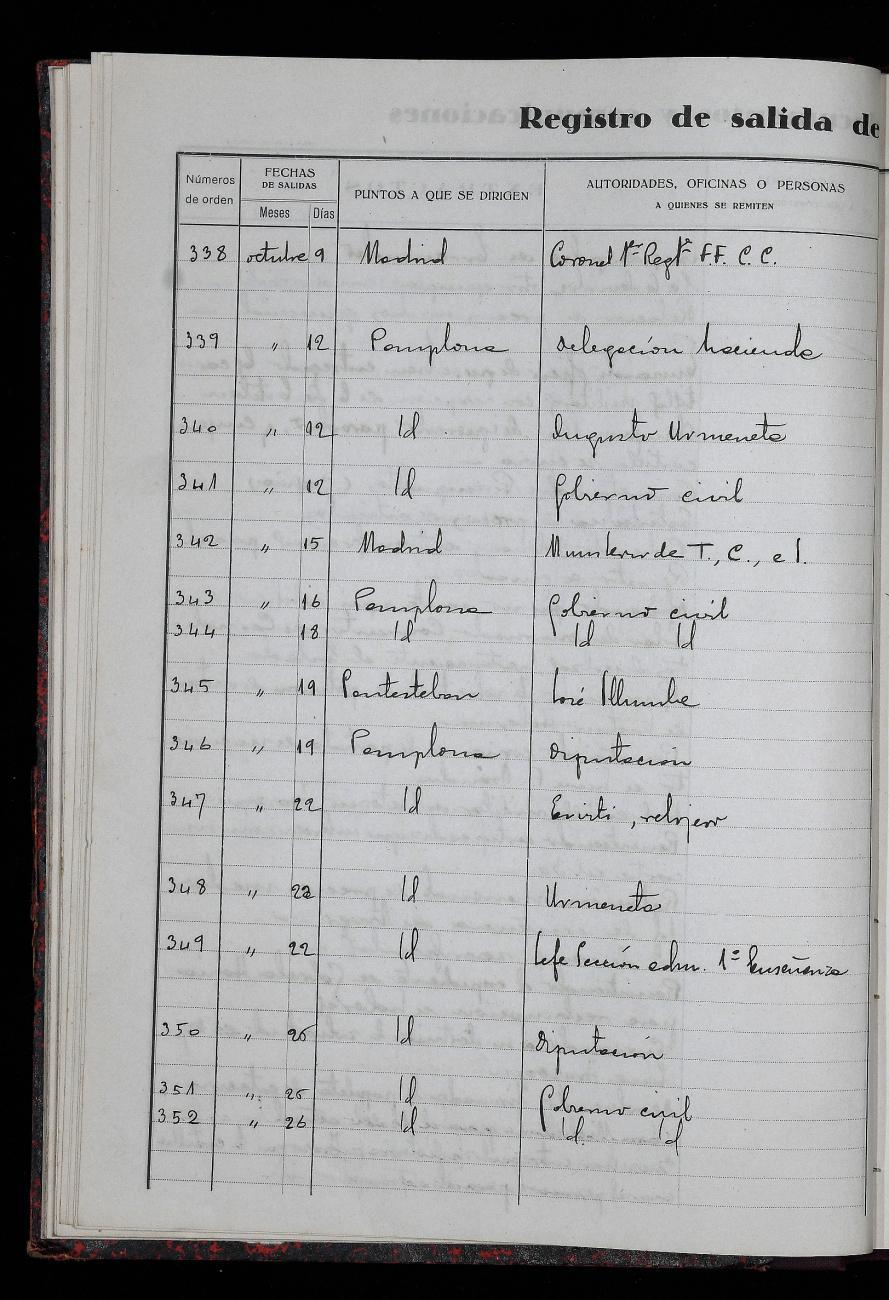 Registro de salida de
Números de orden
FECHAS DE SALIDAS
Meses Días
PUNTOS A QUE SE DIRIGEN
AUTORIDADES, OFICINAS O PERSONAS A QUIENES SE REMITEN
338 octubre 9 Madrid Coronel 1er Regto F.F. C. C.
339 " 12 Pamplona Delegación hacienda
340 " 12 Id Augusto Urmeneta
341 " 12 Id Gobierno civil
342 " 15 Madrid Ministerio de T., C., e I.
343 " 16 Pamplona Gobierno civil
344 18 Id Id Id
345 " 19 Santesteban José
346 " 19 Pamplona Diputación
347 " 22 Id , relojero
348 " 22 Id Urmeneta
349 " 22 Id Jefe Sección adm. 1ª Enseñanza
350 " 26 Id Diputación
351 " 26 Id Gobierno civil
352 " 26 Id Id. Id